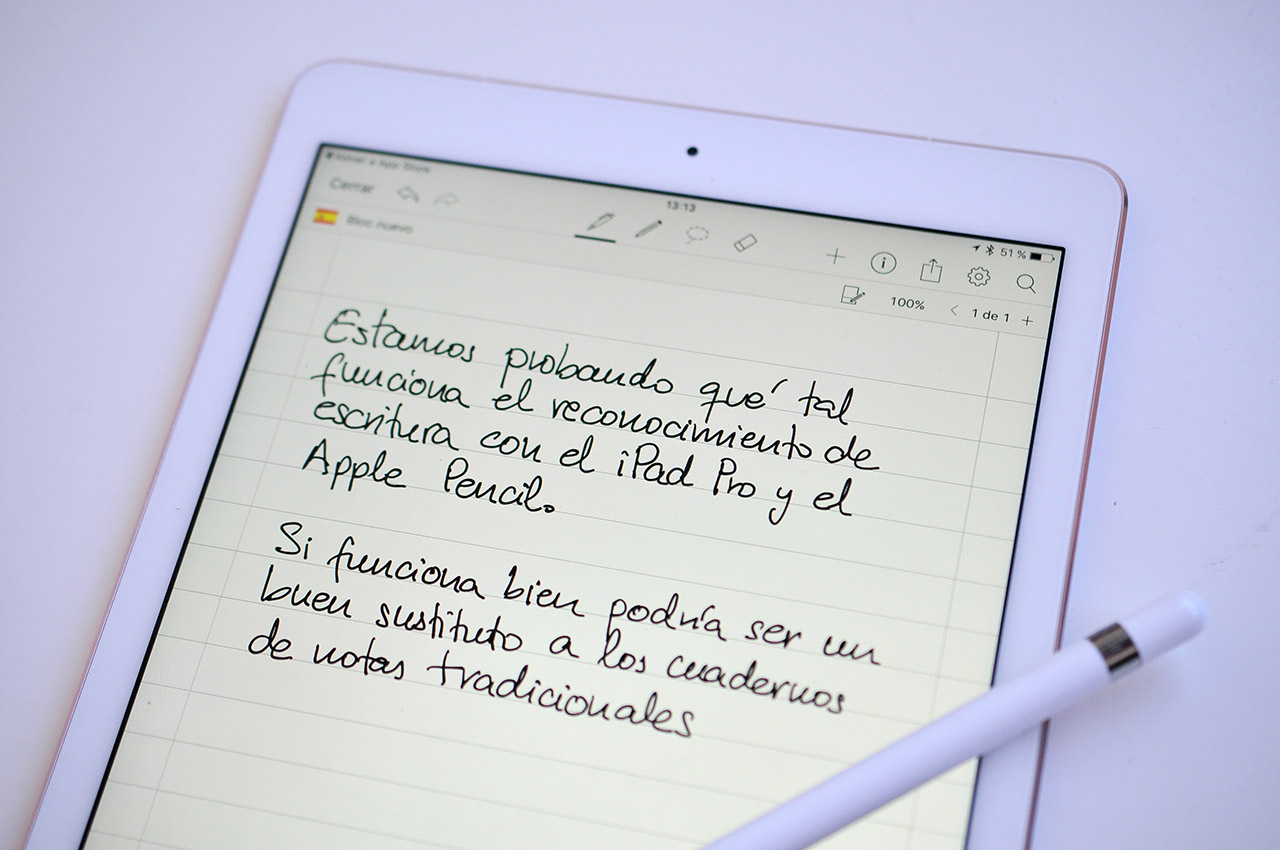 Volver a App Store
13:13
51 %
Cerrar
Bloc nuevo
100%
1 de 1
Estamos probando qué tal
funciona el reconocimiento de
escritura con el iPad Pro y el
Apple Pencil.
Si funciona bien podría ser un
buen sustituto a los cuadernos
de notas tradicionales